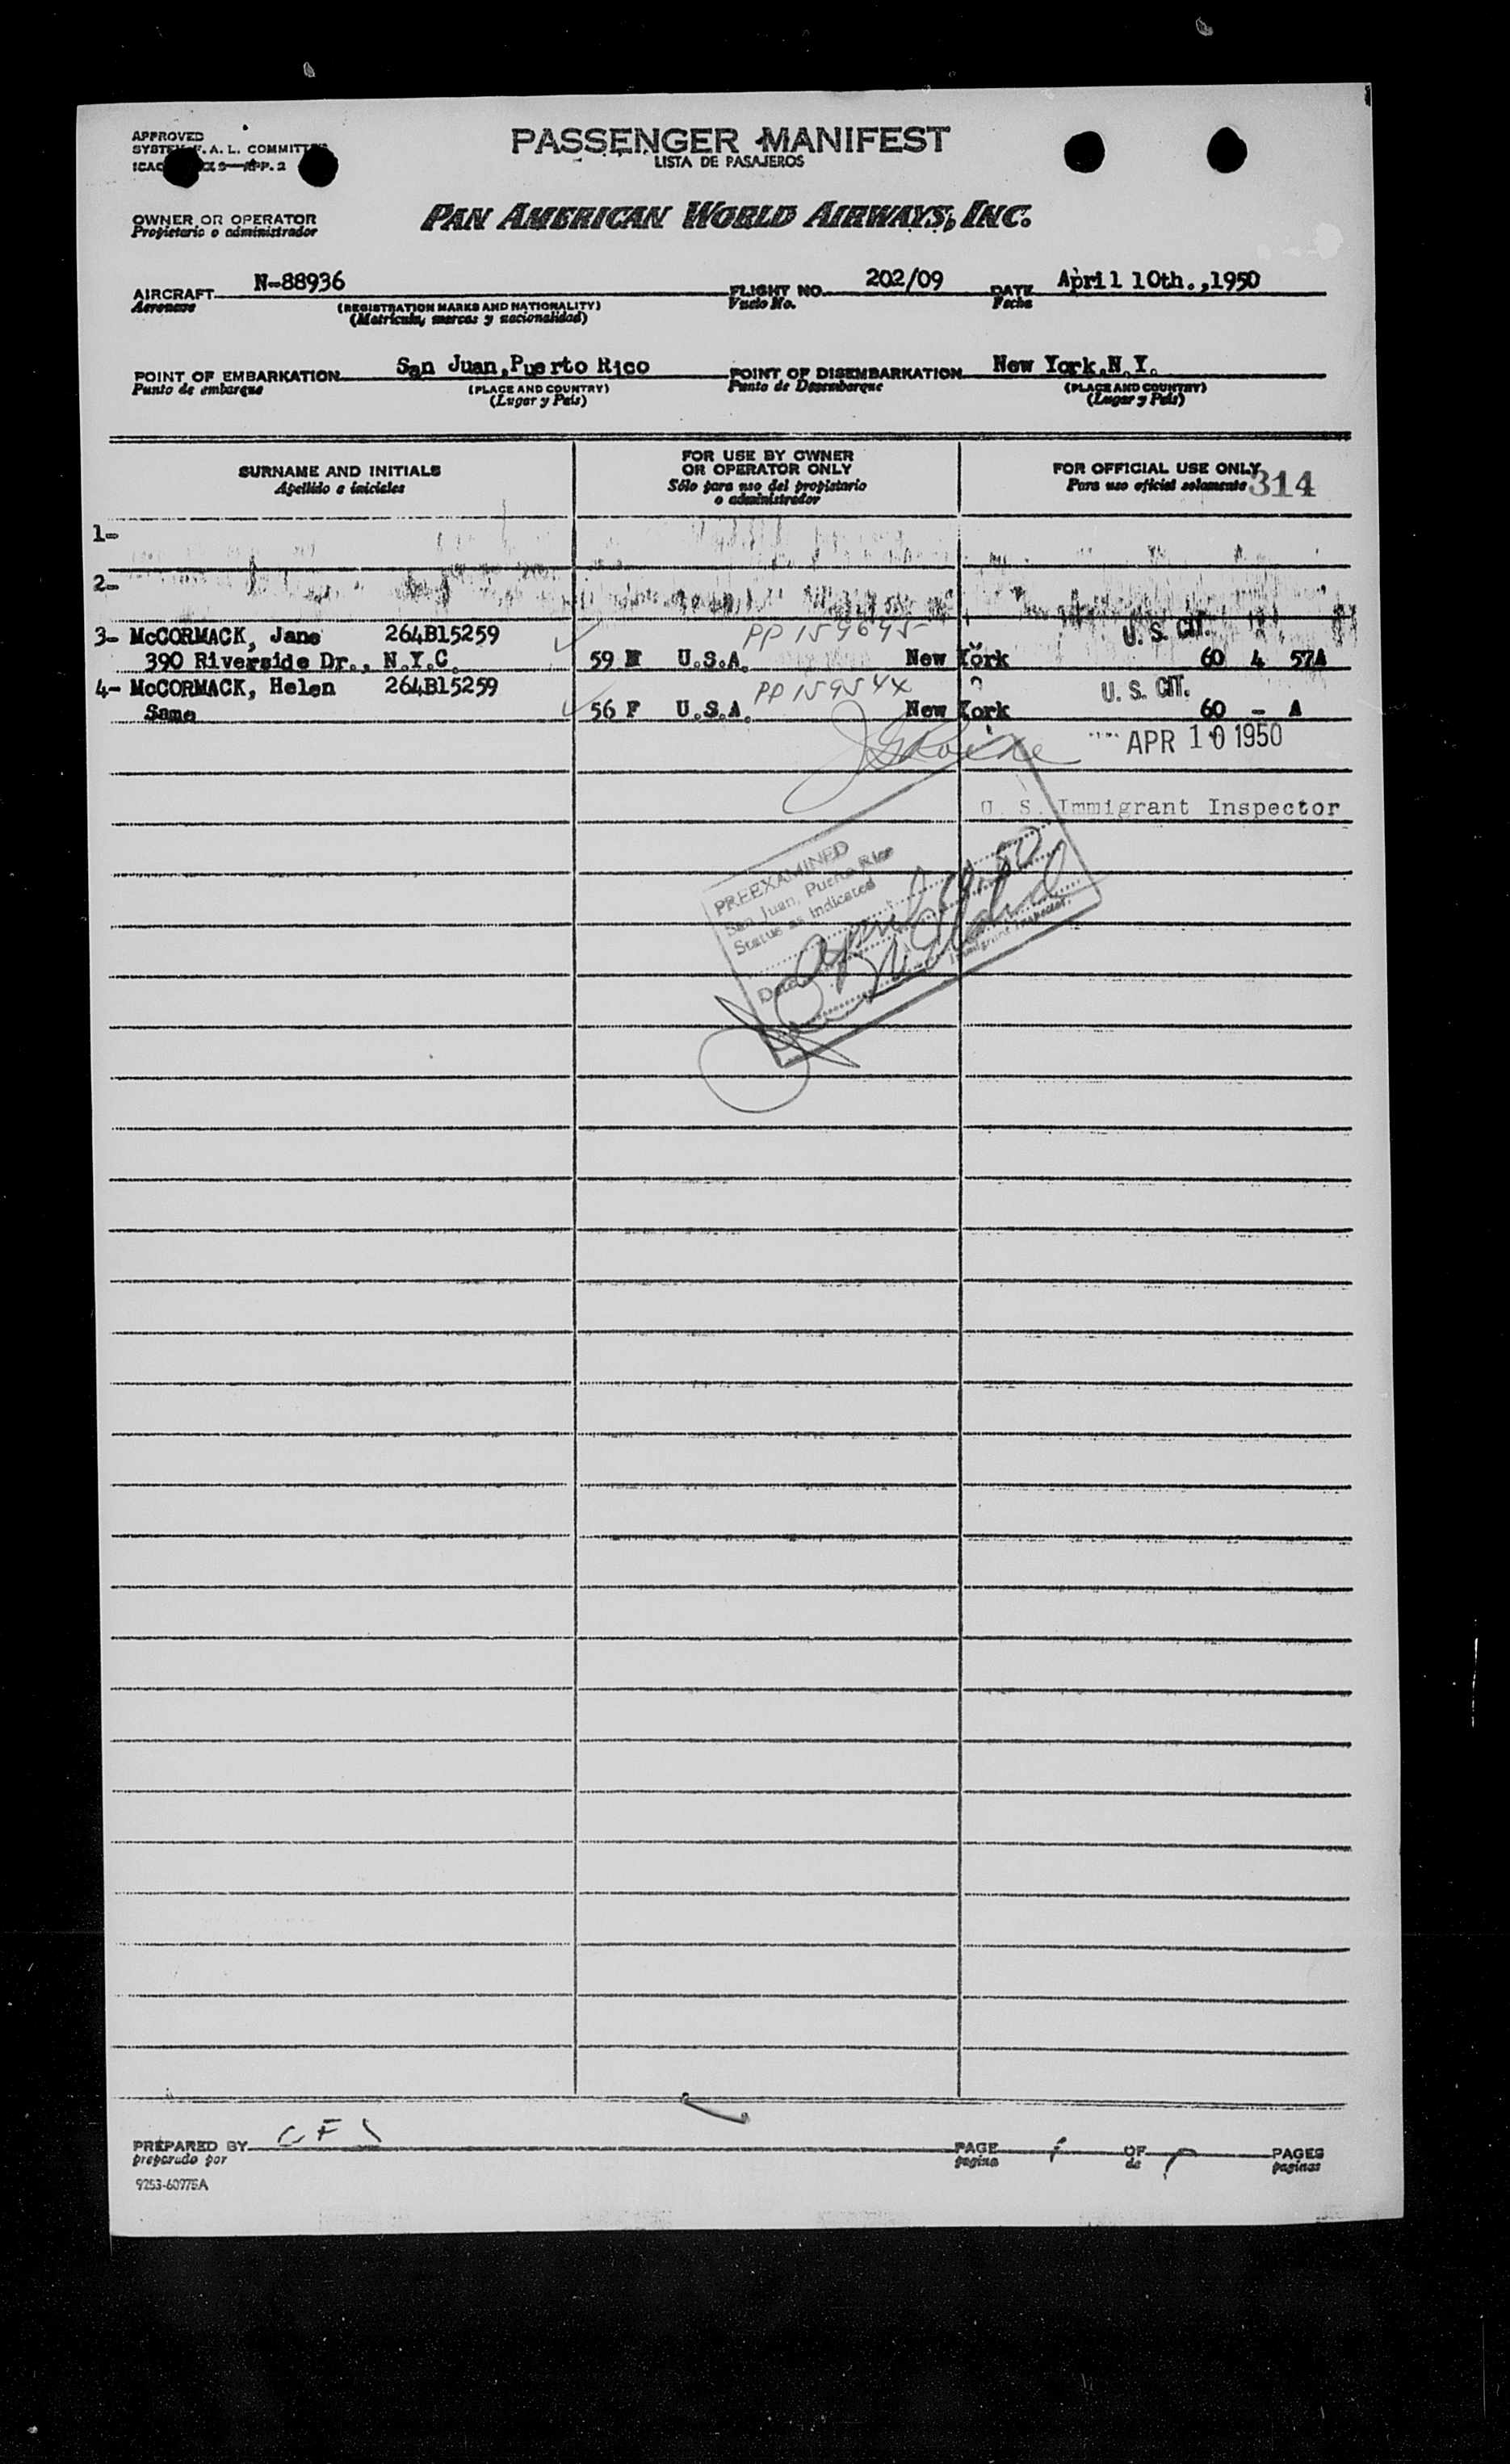 APPROVED
F. A. L. COMMITTEE
PASSENGER MANIFEST
LISTA DE PASAJEROS
OWNER OR OPERATOR
Propietario o administrador
PAN AMERICAN WORLD AIRWAYS, INC.
AIRCRAFT N-88936 FLIGHT NO. 202/09 DATE April 10th.,1950
Aeronave (REGISTRATION MARKS AND NATIONALITY) Vuelo No. Fecha
(Matrícula, marcas y nacionalidad)
POINT OF EMBARKATION San Juan,Puerto Rico POINT OF DISEMBARKATION New York,N.Y.
Punto de embarque (PLACE AND COUNTRY) Punto de Desembarque (PLACE AND COUNTRY)
(Lugar y País) (Lugar y País)
SURNAME AND INITIALS
Apellido e iniciales
FOR USE BY OWNER
OR OPERATOR ONLY
Sólo para uso del propietario
o administrador
FOR OFFICIAL USE ONLY
Para uso oficial solamente 314
1-
2-
3- McCORMACK, Jane 264B15259 U. S. CIT.
390 Riverside Dr., N.Y.C. 59 U.S.A. New York 60 4 57A
4- McCORMACK, Helen 264B15259 U. S. CIT.
Same 56 F U.S.A. New York 60 - A
APR 10 1950
U. S. Immigrant Inspector
PREEXAMINED
San Juan, Puerto Rico
Status as indicated
Date
Immigrant Inspector.
PREPARED BY PAGE OF PAGES
preparado por pagina de paginas
9253-60775A